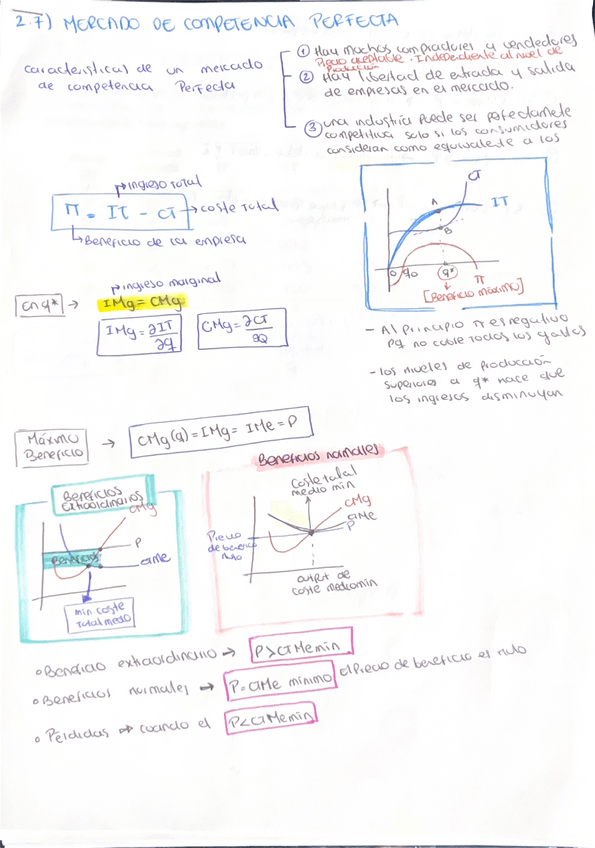 2.7) MERCADO DE COMPETENCIA PERFECTA
Características de un mercado
de competencia Perfecta
① Hay muchos compradores y vendedores
Precio aceptable. Independiente al nivel de
Producción
② Hay libertad de entrada y salida
de empresas en el mercado.
③ una industria puede ser perfectamente
competitiva solo si los consumidores
consideran como equivalente a los
Ingreso total
π = IT - CT → coste total
Beneficio de la empresa
CT
IT
A
B
0
q0
q*
π
[Beneficio máximo]
ingreso marginal
En q* → IMg = CMg
IMg = ∂IT/∂q
CMg = ∂CT/∂Q
- Al principio π es negativo
pq no cubre todos los gastos
- los niveles de producción
superiores a q* hace que
los ingresos disminuyan
Máximo
Beneficio
→ CMg(q) = IMg = IMe = P
Beneficios
extraordinarios
CMg
P
CTMe
Beneficios
min. coste
Total medio
Beneficios normales
Coste total
medio min
CMg
CTMe
P
Precio
de beneficio
nulo
output de
coste medio min
• Beneficio extraordinario → P>CTMe min
• Beneficios normales → P=CTMe mínimo el Precio de beneficio es nulo
• Pérdidas → cuando el P<CTMe min